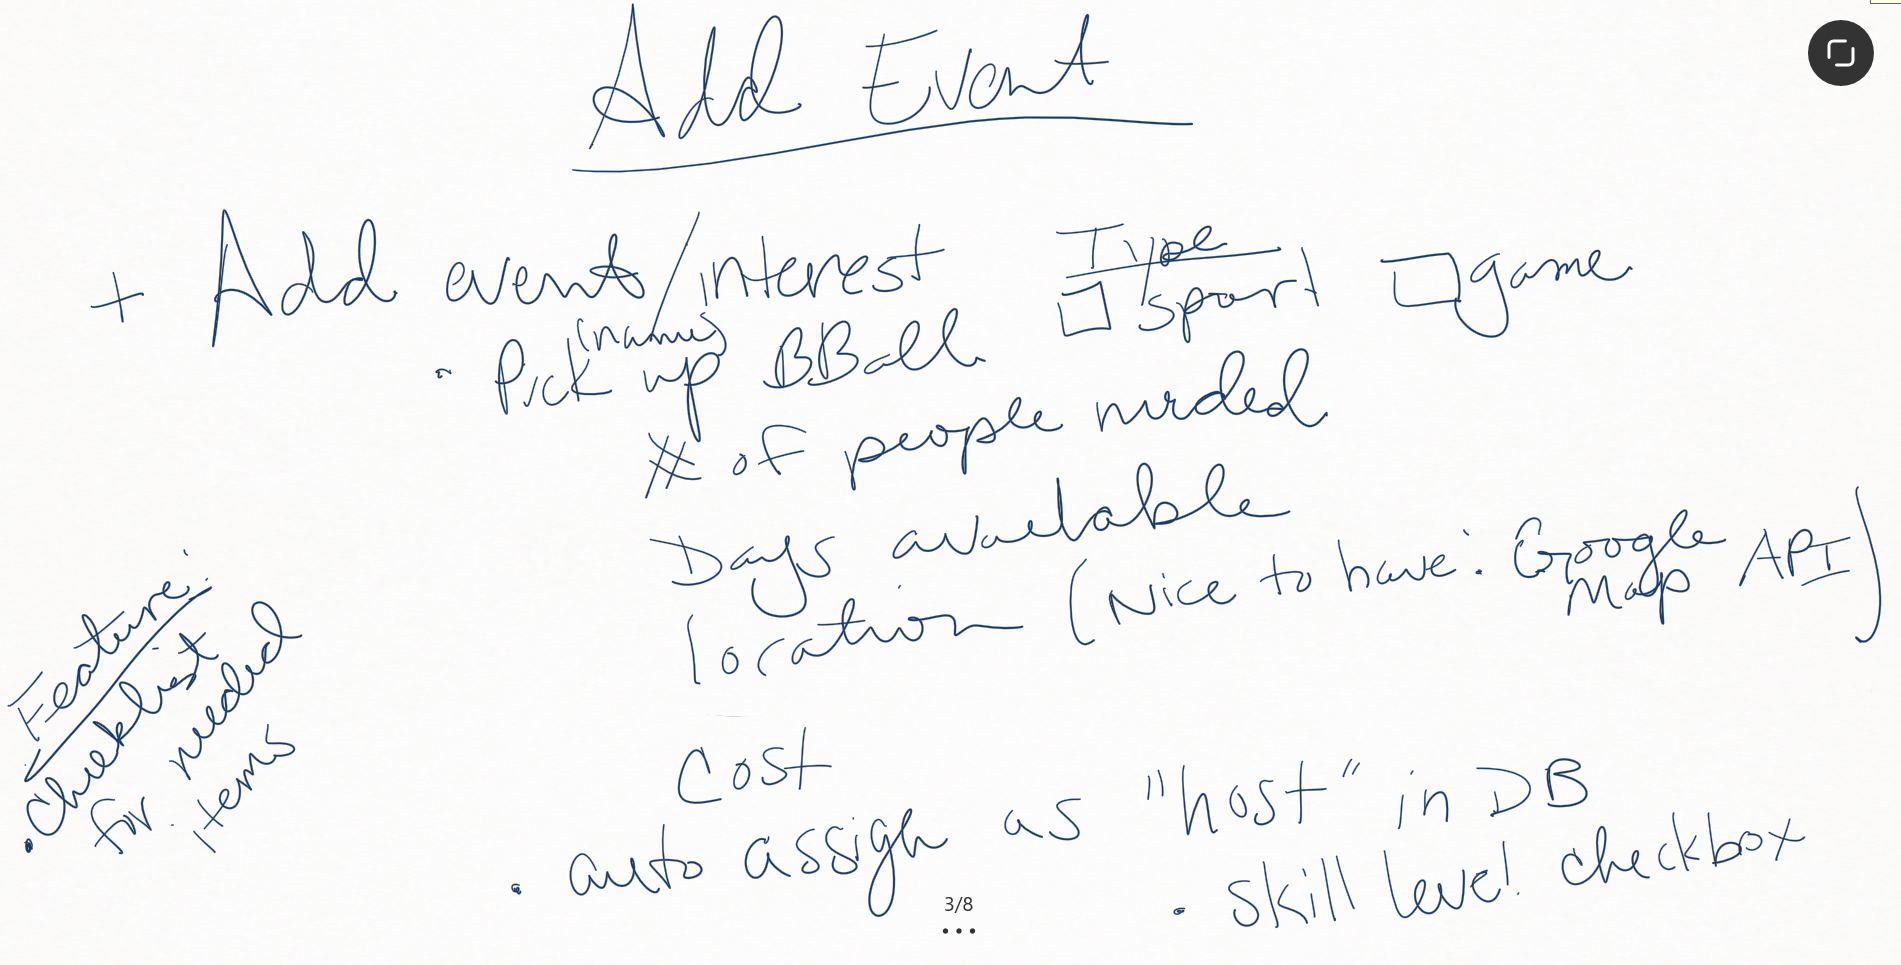 Add Event
+ Add events/interest
(name)
Type
□ sport □ game
• Pick up BBall
# of people needed
Days available
location (Nice to have: Google Maps API)
Cost
• auto assign as "host" in DB
• skill level checkbox
Feature:
• Checklist
for needed
items
3/8